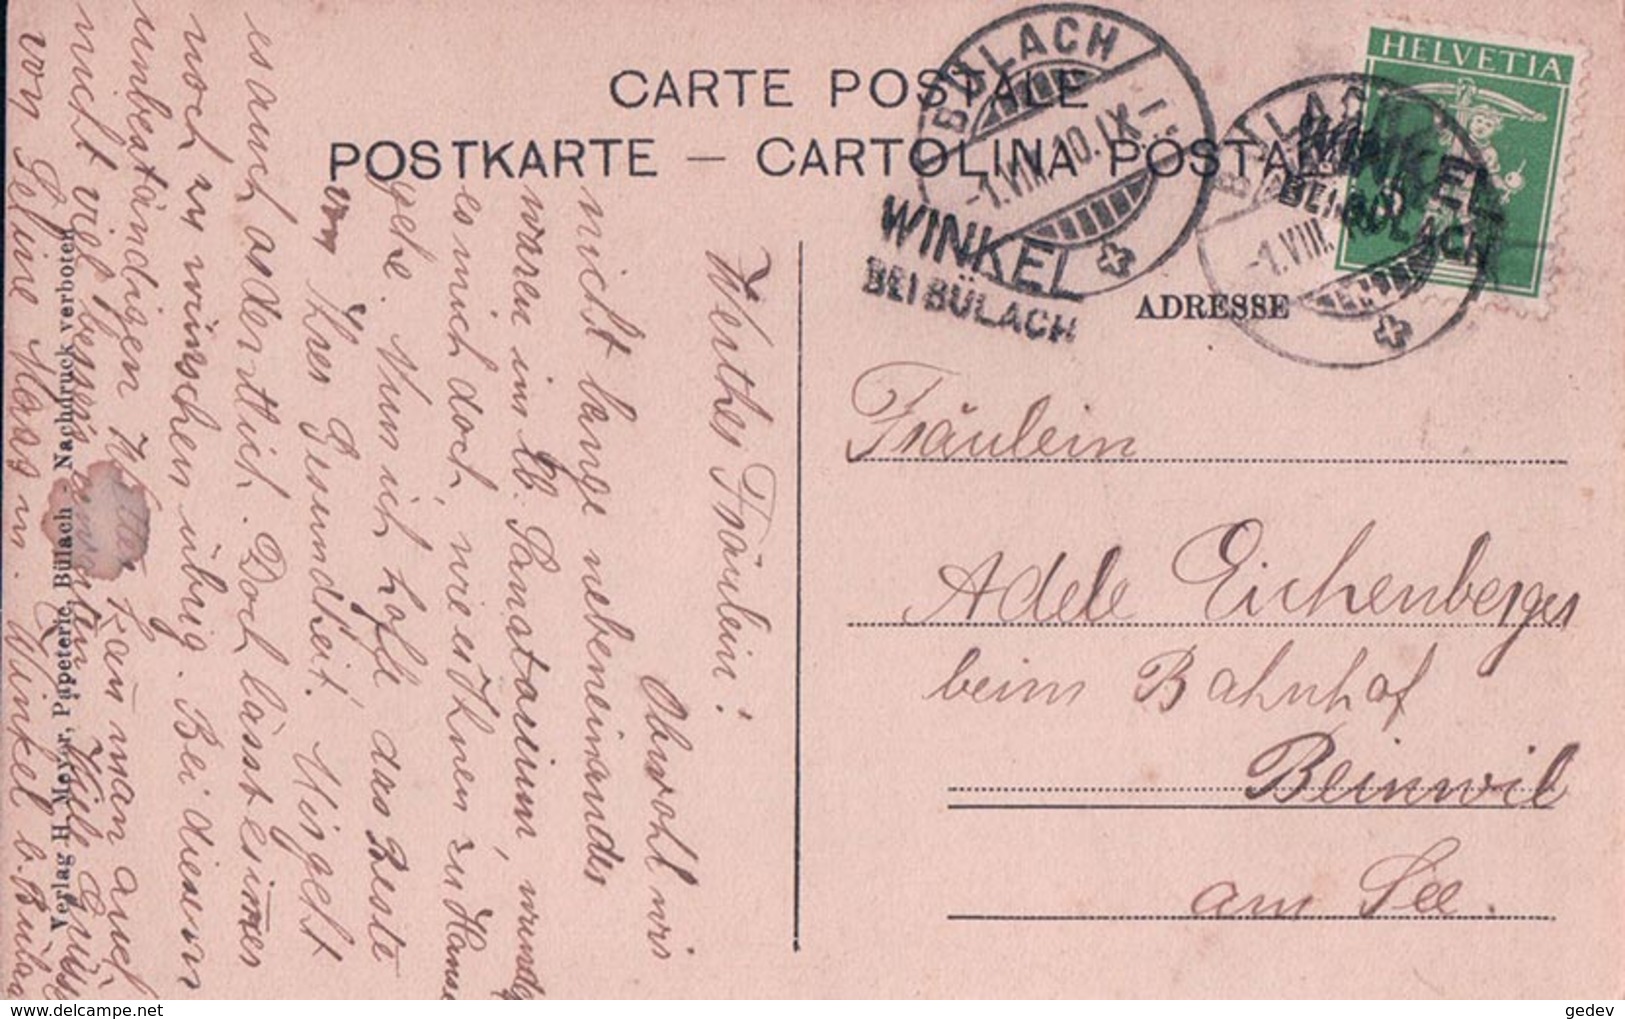 CARTE POSTALE
POSTKARTE — CARTOLINA POSTALE
BÜLACH
-1.VIII.10.IX
WINKEL
BEI BÜLACH
HELVETIA
BÜLACH
-1.VIII.
WINKEL
BEI BÜLACH
ADRESSE
Fräulein
Adele Eichenberger
beim Bahnhof
Beinwil
am See.
Werthes Fräulein!
Obwohl wir
nicht lange nebeneinander
waren im lb. Sanatorium,
es mich doch, wie es Ihnen zu Hause
gehe. Nun ich hoffe das Beste
von Ihrer Gesundheit. Uns geht
es auch ordentlich. Doch lässt es immer
noch zu wünschen übrig. Bei diesem
unbeständigen Wetter kann man auch
nicht viel bessers erwarten. Viele Grüsse
von Seline Maag in Winkel b. Bülach
Verlag H. Mayer, Papeterie, Bülach - Nachdruck verboten
gedev